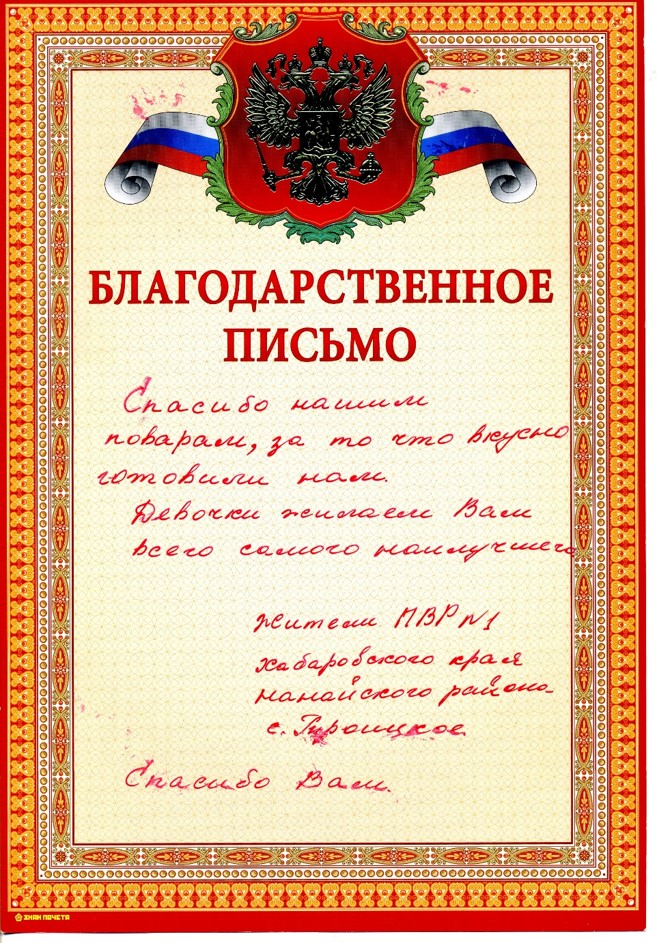 БЛАГОДАРСТВЕННОЕ
ПИСЬМО
Спасибо нашим
поварам, за то что вкусно
готовили нам.
Девочки жилаем Вам
всего самого наилучшего
жители ПВР №1
Хабаровского края
нанайского района
с. Троицкое
Спасибо Вам.
ЗНАК ПОЧЕТА